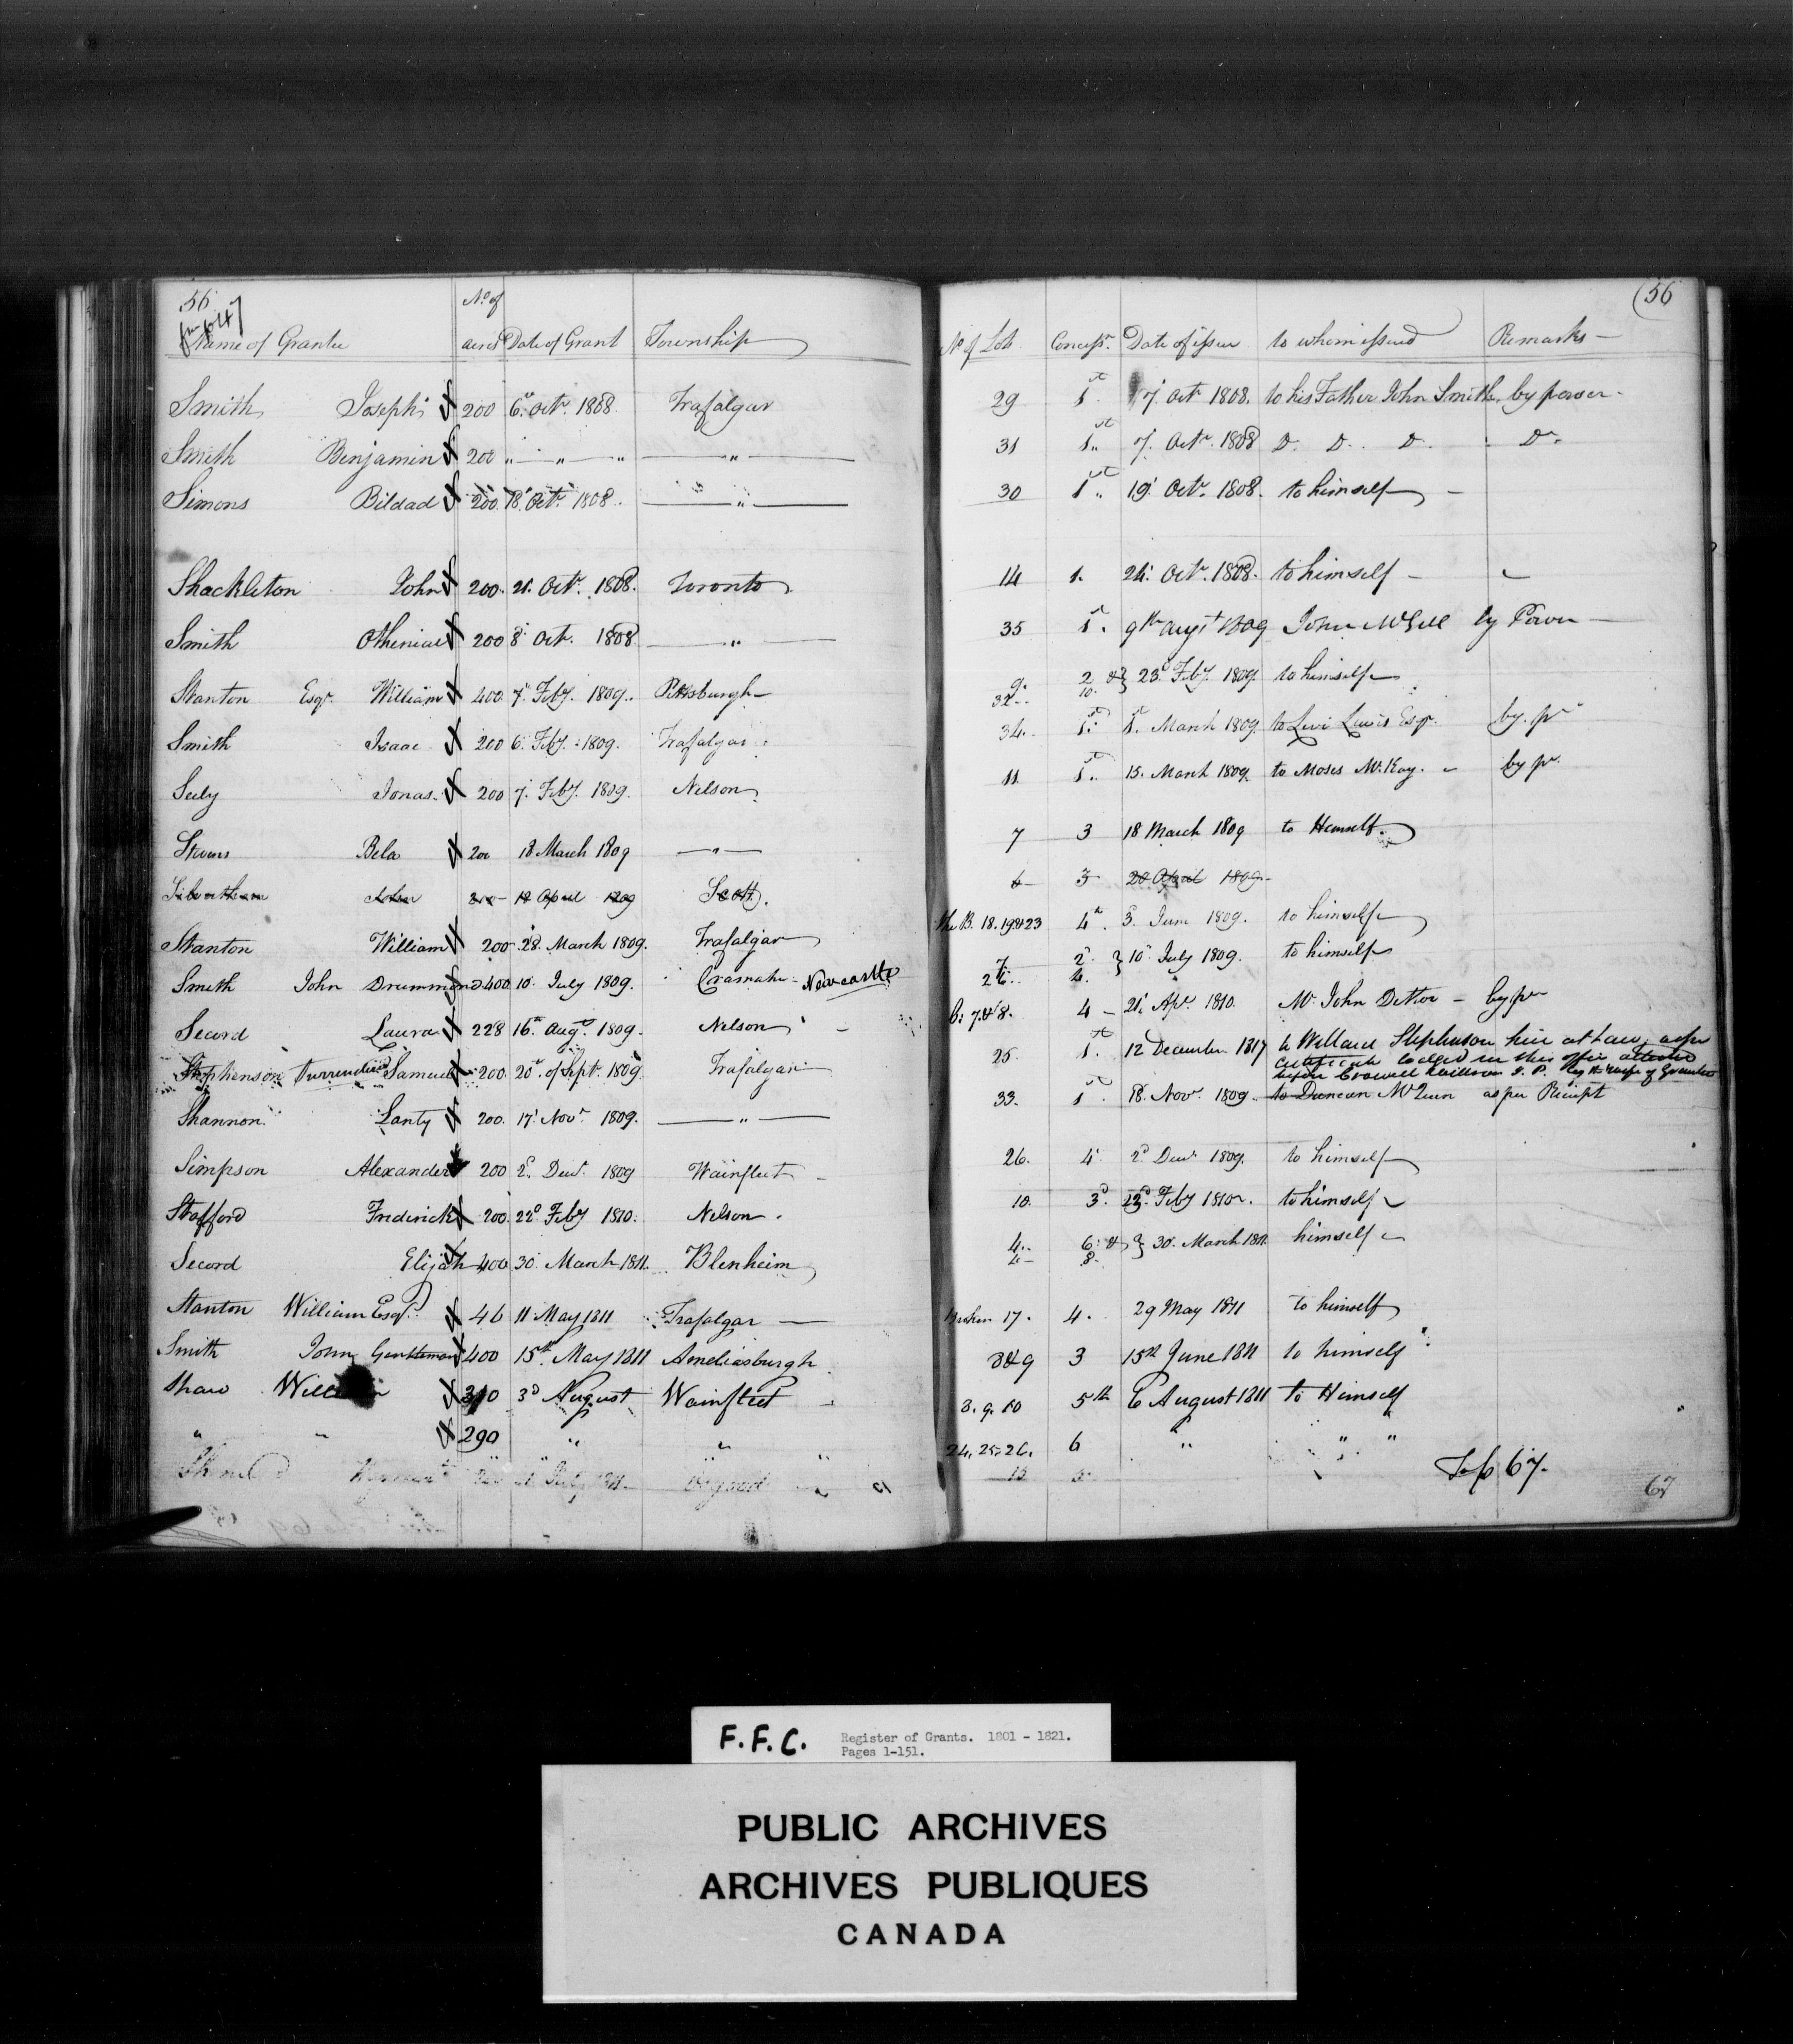 56
fm p 47
Name of Grantee No. of acres Date of Grant Township
Smith Joseph 200 6th Octr. 1808. Trafalgar
Smith Benjamin 200 " " " "
Simons Bildad 200. 18 Octr. 1808. "
Shackleton John 200. 21. Octr. 1808. Toronto
Smith Otheniel 200 8 Octr. 1808 "
Stanton Esqr. William 400 7. Feby. 1809. Pittsburgh
Smith Isaac 200 6. Feby. 1809. Trafalgar
Seely Jonas. 200 7. Feby. 1809. Nelson
Stevens Bela 200 18 March 1809 "
John 200 April 1809 Scott
Stanton William 200 28. March 1809. Trafalgar
Smith John Drummond 400 10. July 1809. Cramahe - Newcastle
Secord Laura 228 16th Augt. 1809. Nelson
Stephenson Surrendered Samuel 200. 20th of Sept. 1809 Trafalgar
Shannon Lanty 200. 17. Novr. 1809. "
Simpson Alexander 200 2d. Decr. 1809 Wainfleet
Stafford Frederick 200. 22d Feby 1810. Nelson.
Secord Elijah 400 30. March 1811. Blenheim
Stanton William Esqr. 46 11 May 1811 Trafalgar
Smith John Gentleman 400 15th May 1811 Ameliasburgh
Shaw William 310 3d August Wainfleet
" " 290 " "
July 1811
(56
No. of Lot Concessn. Date of issue to whom issued Remarks
29 1st. 7. Octr 1808. to his Father John Smith by power.
31 1st. 7. Octr. 1808 Do. Do. Do. Do.
30 1st. 19. Octr. 1808. to himself
14 1. 24. Octr. 1808. to himself
35 1st. 9th Augt 1809 John McGill by Power
9. 2 & } 23d Feby 1809 to himself
32. 10.
34. 1st. 1st. March 1809 to Levi Lewis Esqr. by pr
11 1st. 15. March 1809. to Moses McKay. by pr.
7 3 18 March 1809 to Himself.
6 3 20 April 1809
The B. 18. 19 & 23 4th. 3. June 1809. to himself
7 2. } 10th July 1809. to himself
26. 4.
B: 7. & 8. 4 21. Apr. 1810. Mr. John Detlor by pr
25. 1st. 12 December 1817 to Willard Stephenson heir at Law, as per
Certificate lodged in this office attested
before Crowell Willson J. P. by
33. 1st. 18. Novr. 1809. to Duncan McQueen as per Receipt
26. 4. 2d Decr 1809. to himself
10. 3d. 22d. Feby 1810. to himself
4. 6. & } 30. March 1811 himself
4 8.
Broken 17. 4. 29 May 1811 to himself
8 & 9 3 15th June 1811 to himself
8. 9. 10 5th 6 August 1811 to Himself
24, 25, 26. 6 " " "
15 5.
To fo 67.
67
F.F.C. Register of Grants. 1801 - 1821.
Pages 1-151.
PUBLIC ARCHIVES
ARCHIVES PUBLIQUES
CANADA